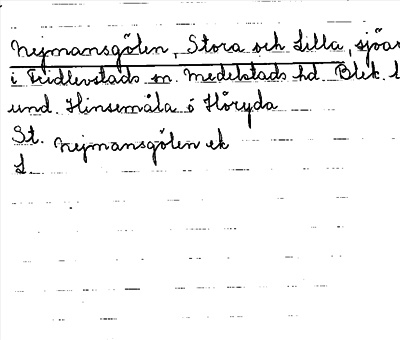 Nejmansgölen, Stora och Lilla, sjöar
i Fridlevstads sn. Medelstads hd Blek. l
und. Hinsemåla o Höryda
St. Nejmansgölen ek
L.